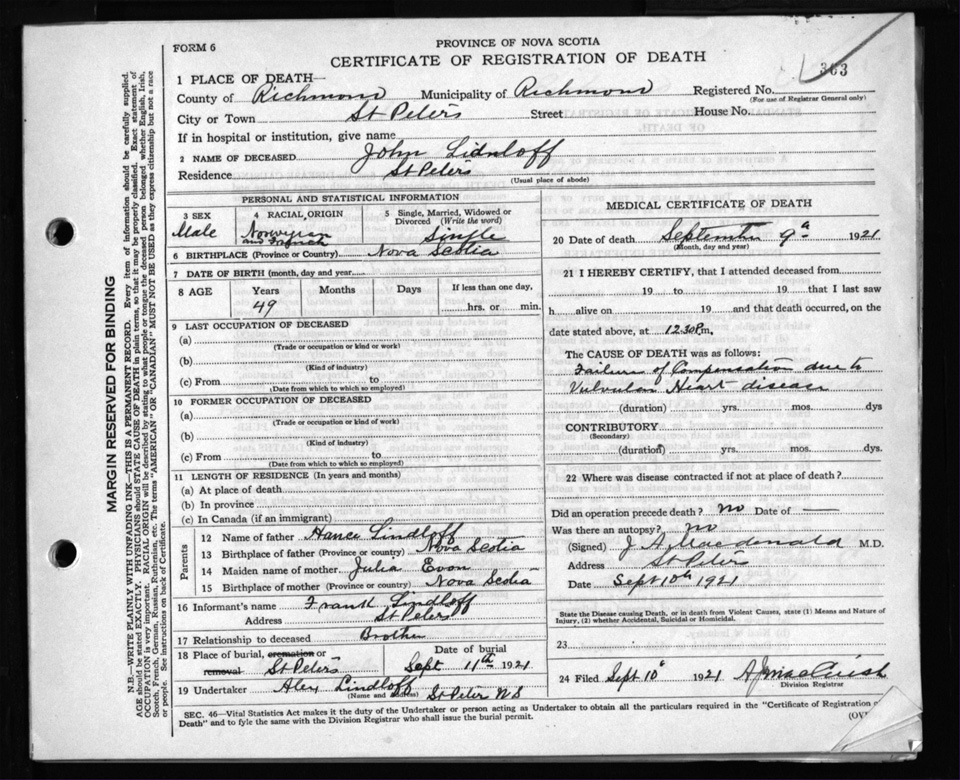 FORM 6
PROVINCE OF NOVA SCOTIA
CERTIFICATE OF REGISTRATION OF DEATH
363
1 PLACE OF DEATH—
County of Richmond Municipality of Richmond Registered No.
(For use of Registrar General only)
City or Town St Peter's Street House No.
If in hospital or institution, give name
2 NAME OF DECEASED John Lidnloff
Residence St Peter's
(Usual place of abode)
PERSONAL AND STATISTICAL INFORMATION
3 SEX
Male
4 RACIAL ORIGIN
Norwegian
and French
5 Single, Married, Widowed or
Divorced (Write the word)
Single
6 BIRTHPLACE (Province or Country) Nova Scotia
7 DATE OF BIRTH (month, day and year)
8 AGE Years Months Days If less than one day,
49 hrs. or min.
9 LAST OCCUPATION OF DECEASED
(a)
(Trade or occupation or kind of work)
(b)
(Kind of industry)
(c) From to
(Date from which to which so employed)
10 FORMER OCCUPATION OF DECEASED
(a)
(Trade or occupation or kind of work)
(b)
(Kind of industry)
(c) From to
(Date from which to which so employed)
11 LENGTH OF RESIDENCE (In years and months)
(a) At place of death
(b) In province
(c) In Canada (if an immigrant)
Parents
12 Name of father Lindloff
13 Birthplace of father (Province or country) Nova Scotia
14 Maiden name of mother Julia Evon
15 Birthplace of mother (Province or country) Nova Scotia
16 Informant's name Frank Lindloff
Address St Peter's
17 Relationship to deceased Brother
18 Place of burial, cremation or Date of burial
removal St Peter's Sept 11th 1921
19 Undertaker Alex Lindloff St Peter N S
(Name and address)
MEDICAL CERTIFICATE OF DEATH
20 Date of death September 9th 1921
(Month, day and year)
21 I HEREBY CERTIFY, that I attended deceased from
19 to 19 that I last saw
h alive on 19 and that death occurred, on the
date stated above, at 12.30 Pm,
The CAUSE OF DEATH was as follows:
Failure of Compensation due to
Valvular Heart disease
(duration) yrs. mos. dys
CONTRIBUTORY
(Secondary)
(duration) yrs. mos. dys.
22 Where was disease contracted if not at place of death?
Did an operation precede death? No Date of —
Was there an autopsy? No
(Signed) J A Macdonald M.D.
Address St Peter's
Date Sept 10th 1921
State the Disease causing Death, or in death from Violent Causes, state (1) Means and Nature of
Injury, (2) whether Accidental, Suicidal or Homicidal.
23
24 Filed Sept 10 1921
Division Registrar
SEC. 46—Vital Statistics Act makes it the duty of the Undertaker or person acting as Undertaker to obtain all the particulars required in the "Certificate of Registration of
Death" and to fyle the same with the Division Registrar who shall issue the burial permit.
(OV
MARGIN RESERVED FOR BINDING
N.B.—WRITE PLAINLY WITH UNFADING INK—THIS IS A PERMANENT RECORD. Every item of information should be carefully supplied.
AGE should be stated EXACTLY. PHYSICIANS should STATE CAUSE OF DEATH in plain terms, so that it may be properly classified. Exact statement of
OCCUPATION is very important. RACIAL ORIGIN will be described by stating to what people or tongue the deceased person belonged whether English, Irish,
Scotch, French, German, Russian, Ruthenian, etc. The terms "AMERICAN" OR "CANADIAN" MUST NOT BE USED as they express citizenship but not a race
or people. See instructions on back of Certificate.